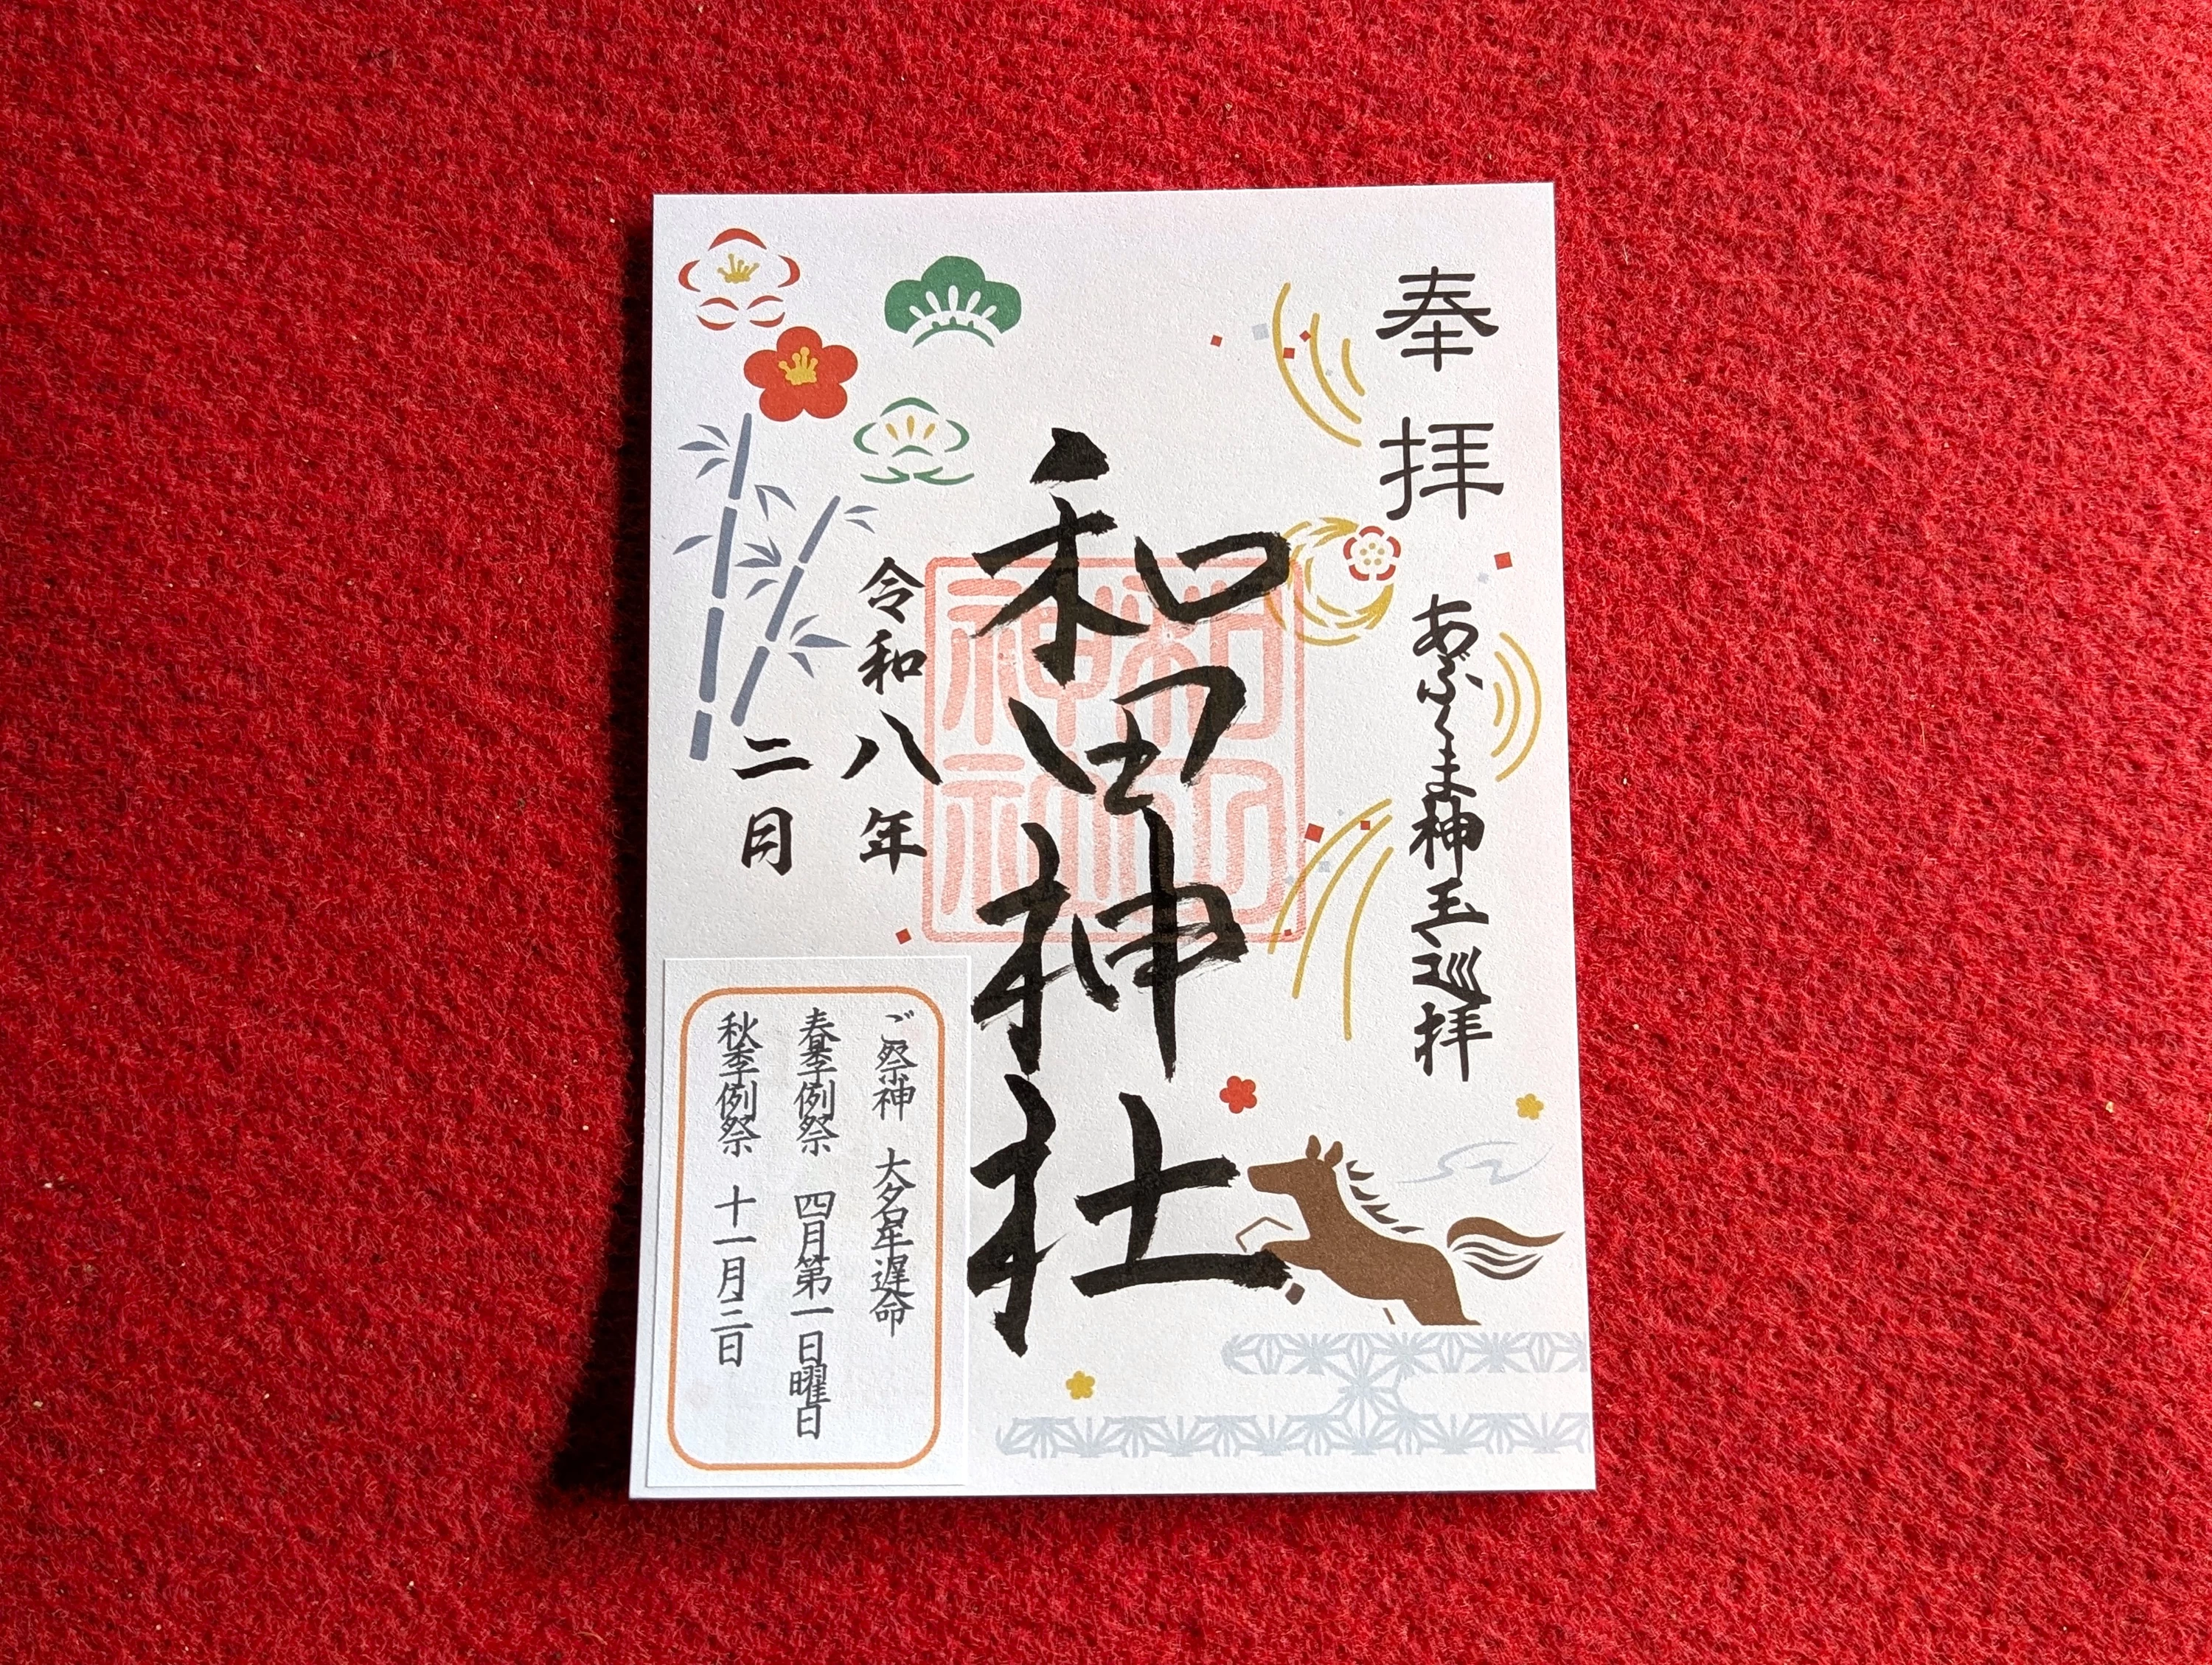 奉拝
あぶくま神玉巡拝
和田神社
和田神社
令和八年
二月
ご祭神 大名牟遅命
春季例祭 四月第一日曜日
秋季例祭 十一月三日